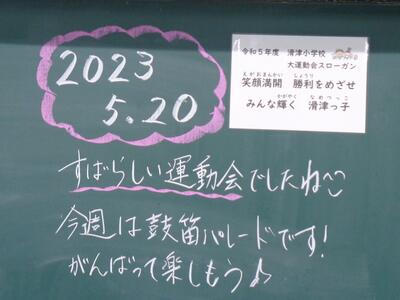 2023
5.20
令和5年度 滑津小学校
大運動会スローガン
えがおまんかい しょうり
笑顔満開 勝利をめざせ
かがやく なめつっこ
みんな輝く 滑津っ子
すばらしい運動会でしたね〜
今週は鼓笛パレードです!
がんばって楽しもう♪